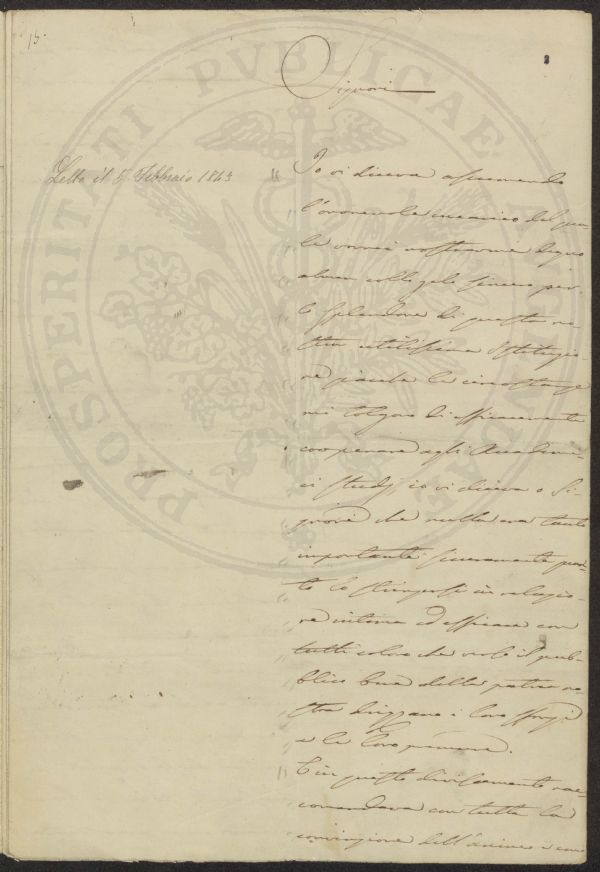 15.
PROSPERITATI PUBLICAE AUGENDAE
Signori
Letta il 5 Febbraio 1843
Io vi diceva assumendo
l'onorevole incarico del qua
le vorrei mostrarmi degno
almen collo zelo sincero per
lo splendore di questa no
stra utilissima Istituzio
ne giacché le circostanze
mi tolgono di efficacemente
cooperare agli Accademi-
ci studj, io vi diceva o Si-
gnori che nulla era tanto
importante sinceramente quan-
to lo stringersi in relazio-
ne intima ed efficace con
tutti coloro che verso il pub-
blico bene della patria no-
stra dirizzano i loro sforzi
e le loro premure.
E in questo divisamento rac-
comandava con tutta la
convinzione dell'animo i